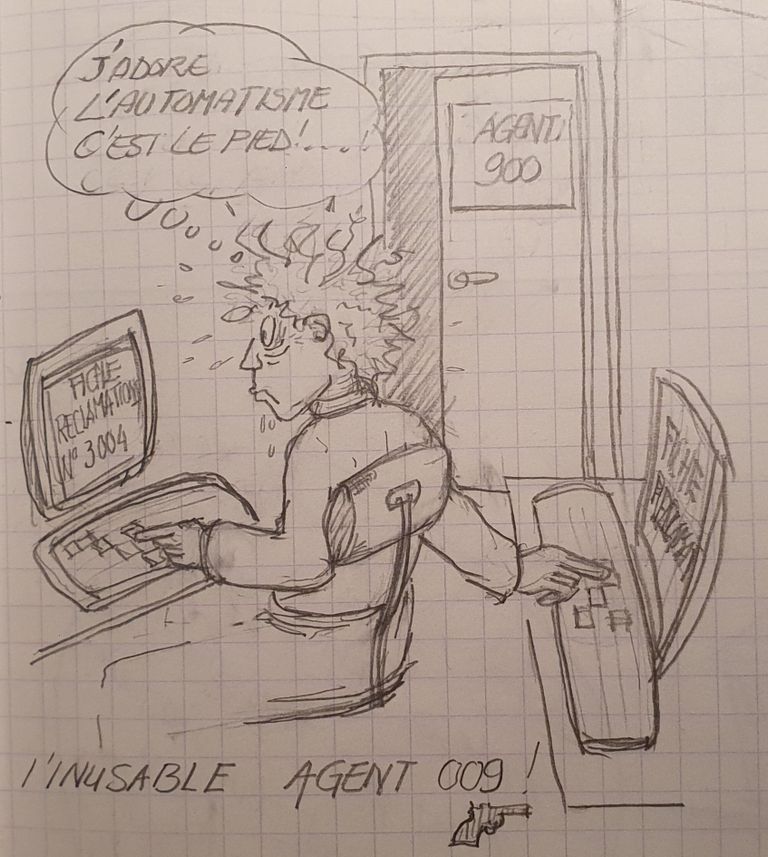 J'ADORE
L'AUTOMATISME
C'EST LE PIED!....!
AGENT
900
FICHE
RECLAMATIONS
N° 3004
FICHE
RECLAMAT
l'INUSABLE AGENT 009 !